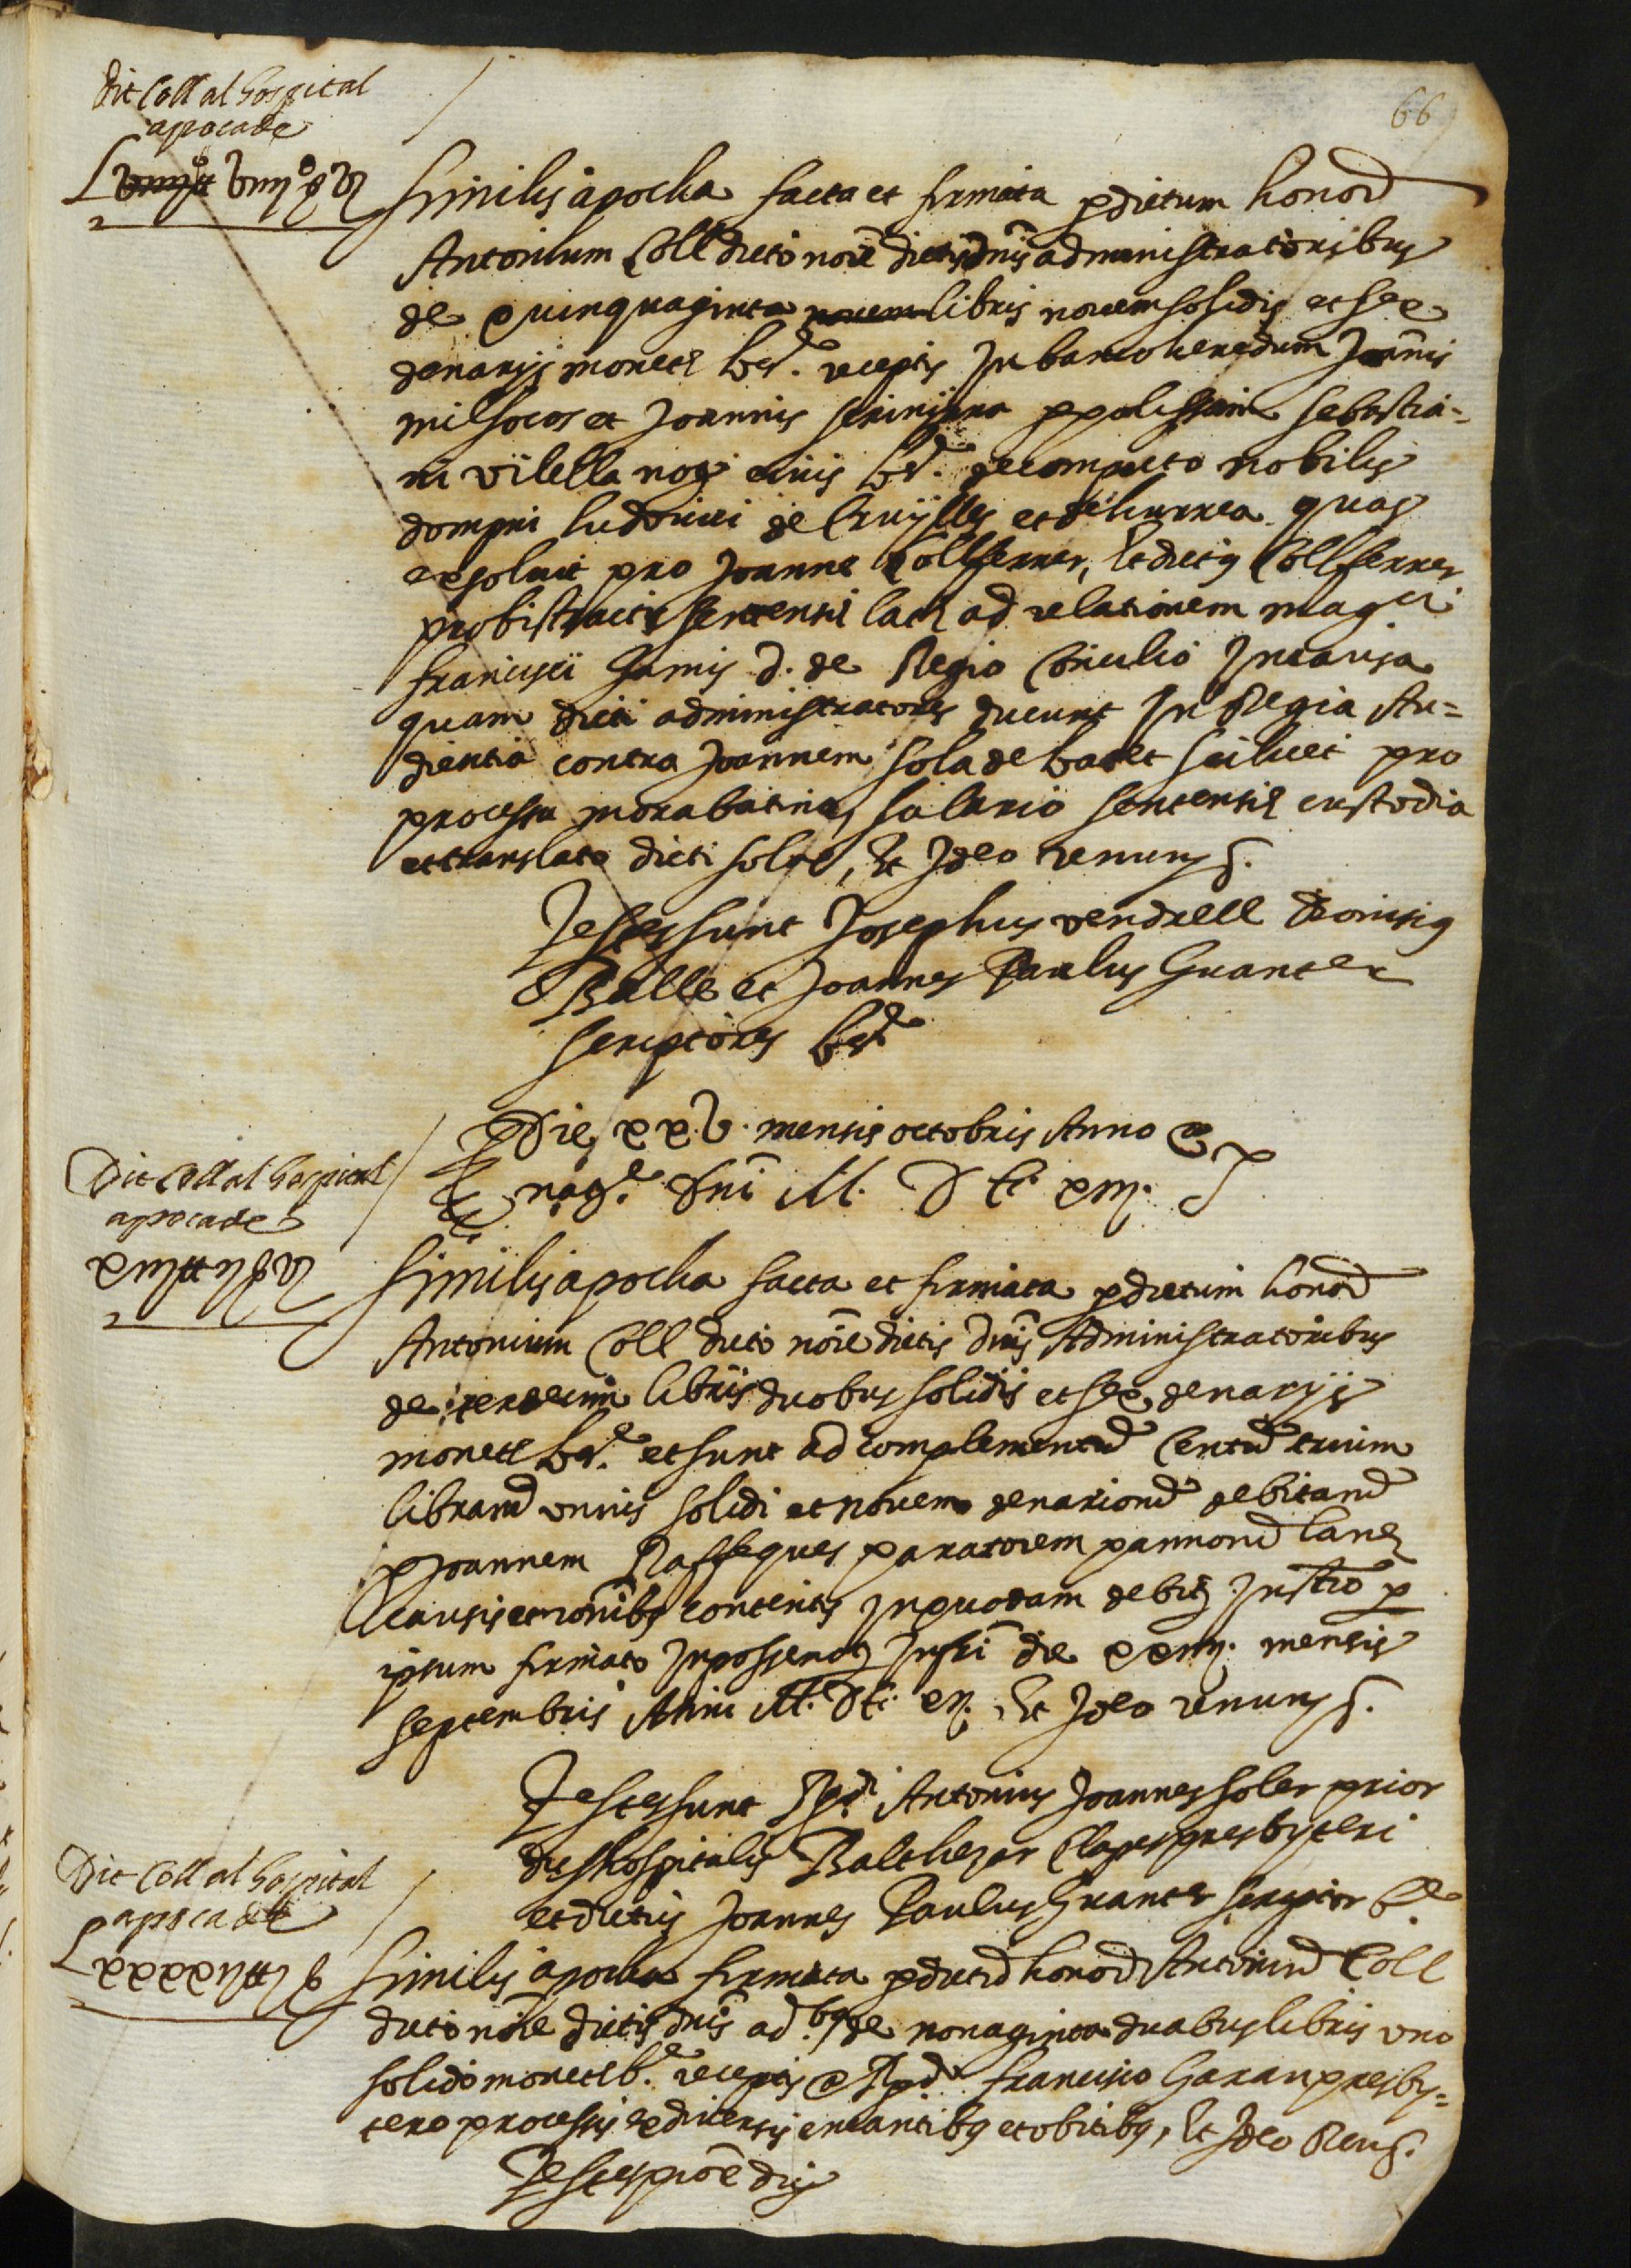 66
Dit Coll al hospital
apocade
L viiij s vj
Similis apocha facta et firmata p dictum honord
Antonium Coll dicto noīe dictis dnīs administratoribus
de quinquaginta novem libris novem solidis et sex
denarijs monete bar. receptis In banco heredum Joannis
milsocos et Joannis p polissam Sebastia=
ni vilella nog civis bar. de computo nobilis
dompni ludovici de Cruylles et de hurrea quas
exsoluit pro Joanne Collferrer, et dictus Collferrer
pro bistractis sentensie late ad relationem magci
francisci Gamis d. de Regio Consilio In causa
quam dicti administratores ducunt In Regia Au=
dientia contra Joannem sola de scilicet pro
processu morabatines salario sentensie custodia
et translato dicti sole, et Ideo renuns s.
Testes sunt Josephus vendrell dionisius
Balle et Joannes Paulus Guanter
scriptores bar
Die xxv. mensis octobris Anno a
nat. Dnī M. D C xiij.
Dit Coll al hospital
apocade
xiij tt ij s vj
Similis apocha facta et firmata p dictum honord
Antonium Coll dicto noīe dictis dnīs Administratoribus
de terdecim libris duobus solidis et sex denarijs
monete bar. et sunt ad complementum Centum trium
librarum unius solidi et novem denariorum debitarum
p Joannem Rafeques paratorem pannorum lane
causis et ronibus contentis In quodam debitj Instro p
ipsum firmato In posse notj Infri die xxiij. mensis
septembris Anni M. DC. xij. et Ideo renuns s.
Testes sunt Rdi Antonius Joannes soler prior
dict hospitalis Balthezar Clapes presbyteri
et dictus Joannes Paulus Guanter scriptor b.
Dit Coll al hospital
apocade
Lxxxxij tt j s
Similis apocha firmata p dictum honord Antonium Coll
dicto noīe dictis dnīs ad.bus de nonaginta duabus libris uno
solido monete b. receptis a Rdo francisco Garau presby=
tero processis ex diversis encantibus et obitibus, et Ideo Renus.
Testes proxe dij